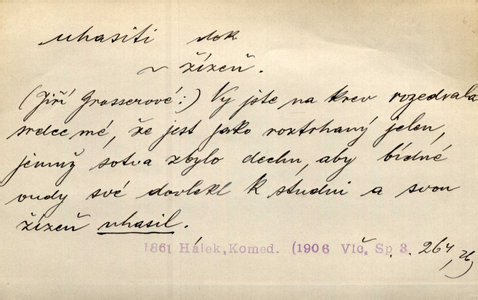 uhasiti dok
~ žízeň.
(Jiří Grosserové:) Vy jste na krev rozedrala
srdce mé, že jest jako roztrhaný jelen,
jemuž sotva zbylo dechu, aby bídné
oudy své dovlekl k studni a svou
žízeň uhasil.
1861 Hálek, Komed. (1906 Vlč. Sp 3, 264,